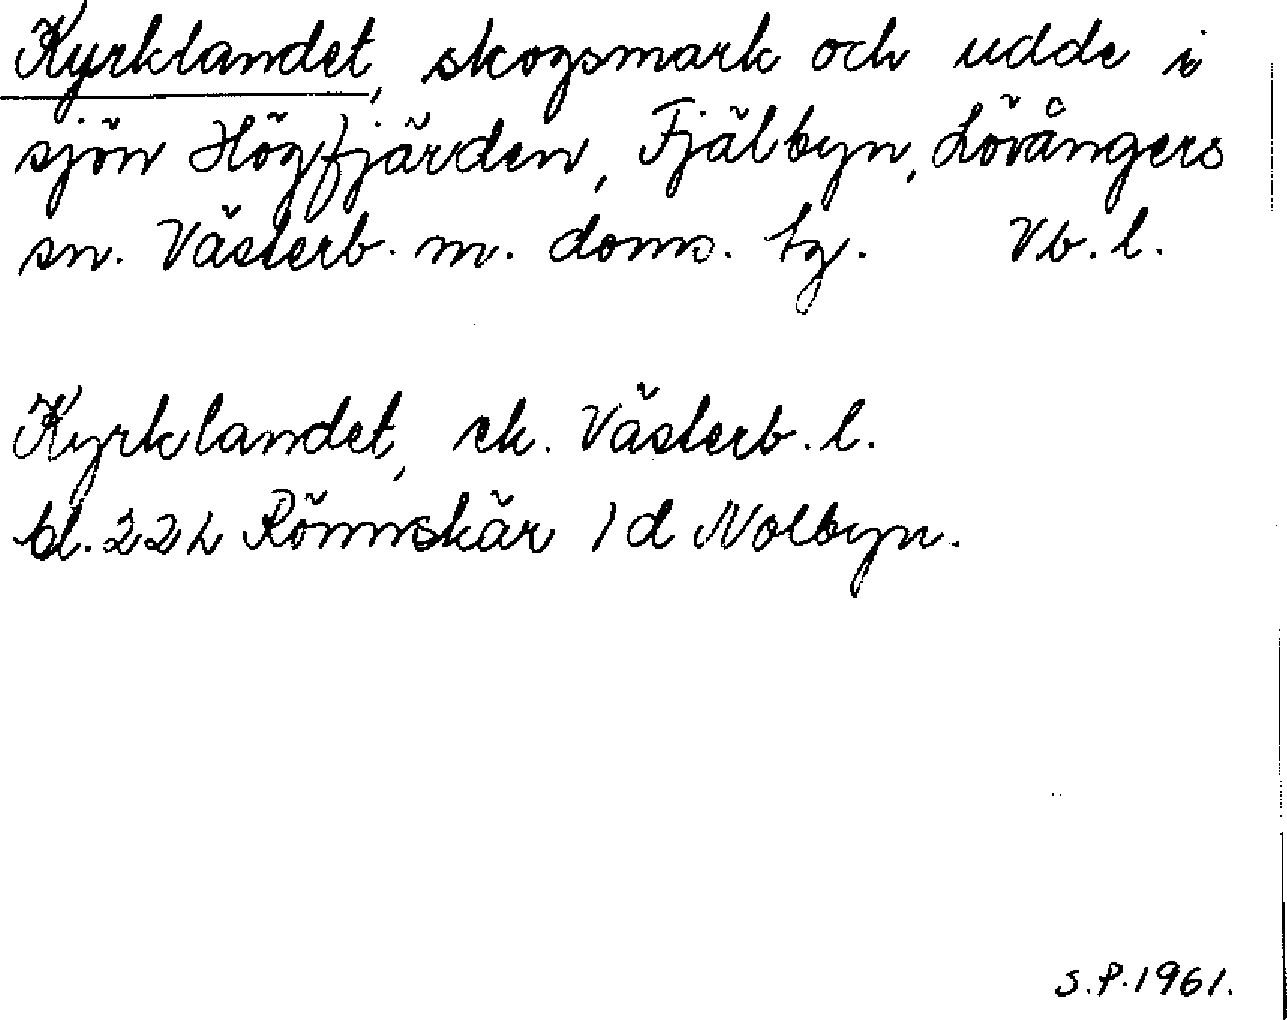 Kyrklandet, skogsmark och udde i
sjön Högfjärden, Fjälbyn, Lövångers
sn. Västerb. m. doms. tg. Vb. l.
Kyrklandet, ek. Västerb. l.
bl. 22 L Rönnskär 1 d Nolbyn.
S.P. 1961.